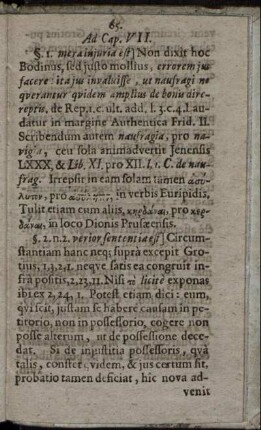 65.
Ad Cap. VII.
§. 1. mera injuria est] Non dixit hoc
Bodinus, sed justo mollius, errorem jus
facere: ita jus invaluisse, ut naufragi ne
querantur quidem amplius de bonis dire-
reptis, de Rep, 1. c. ult. add, l. 3. c. 4. Lau-
datur in margine Authentica Frid. II.
Scribendum autem naufragia, pro na-
vigia, ceu sola animadvertit Jenensis
LXXX, & Lib. XI. pro XII. l. 1. C. de nau-
frag. Irrepsit in eam solam tamen
pro in verbis Euripidis,
Tulit etiam cum aliis, κηρδᾶναι, pro κερ-
δᾶναι, in loco Dionis Prusæensis.
§. 2. n. 2. verior sententia est] Circum-
stantiam hanc neq; supra excepit Gro-
tius, 1, 3, 2, 1. neque satis ea congruit in-
frà positis, 2, 23, 11. Nisi τὸ licitè exponas
ibi ex 2, 24, 1. Potest etiam dici: eum,
qui scit, justam se habere causam in pe-
titorio, non in possessorio, cogere non
posse alterum, ut de possessione dece-
dat. Si de injustitia possessoris, quà
talis, constet quidem, & jus certum sit,
probatio tamen deficiat, hic nova ad-
venit